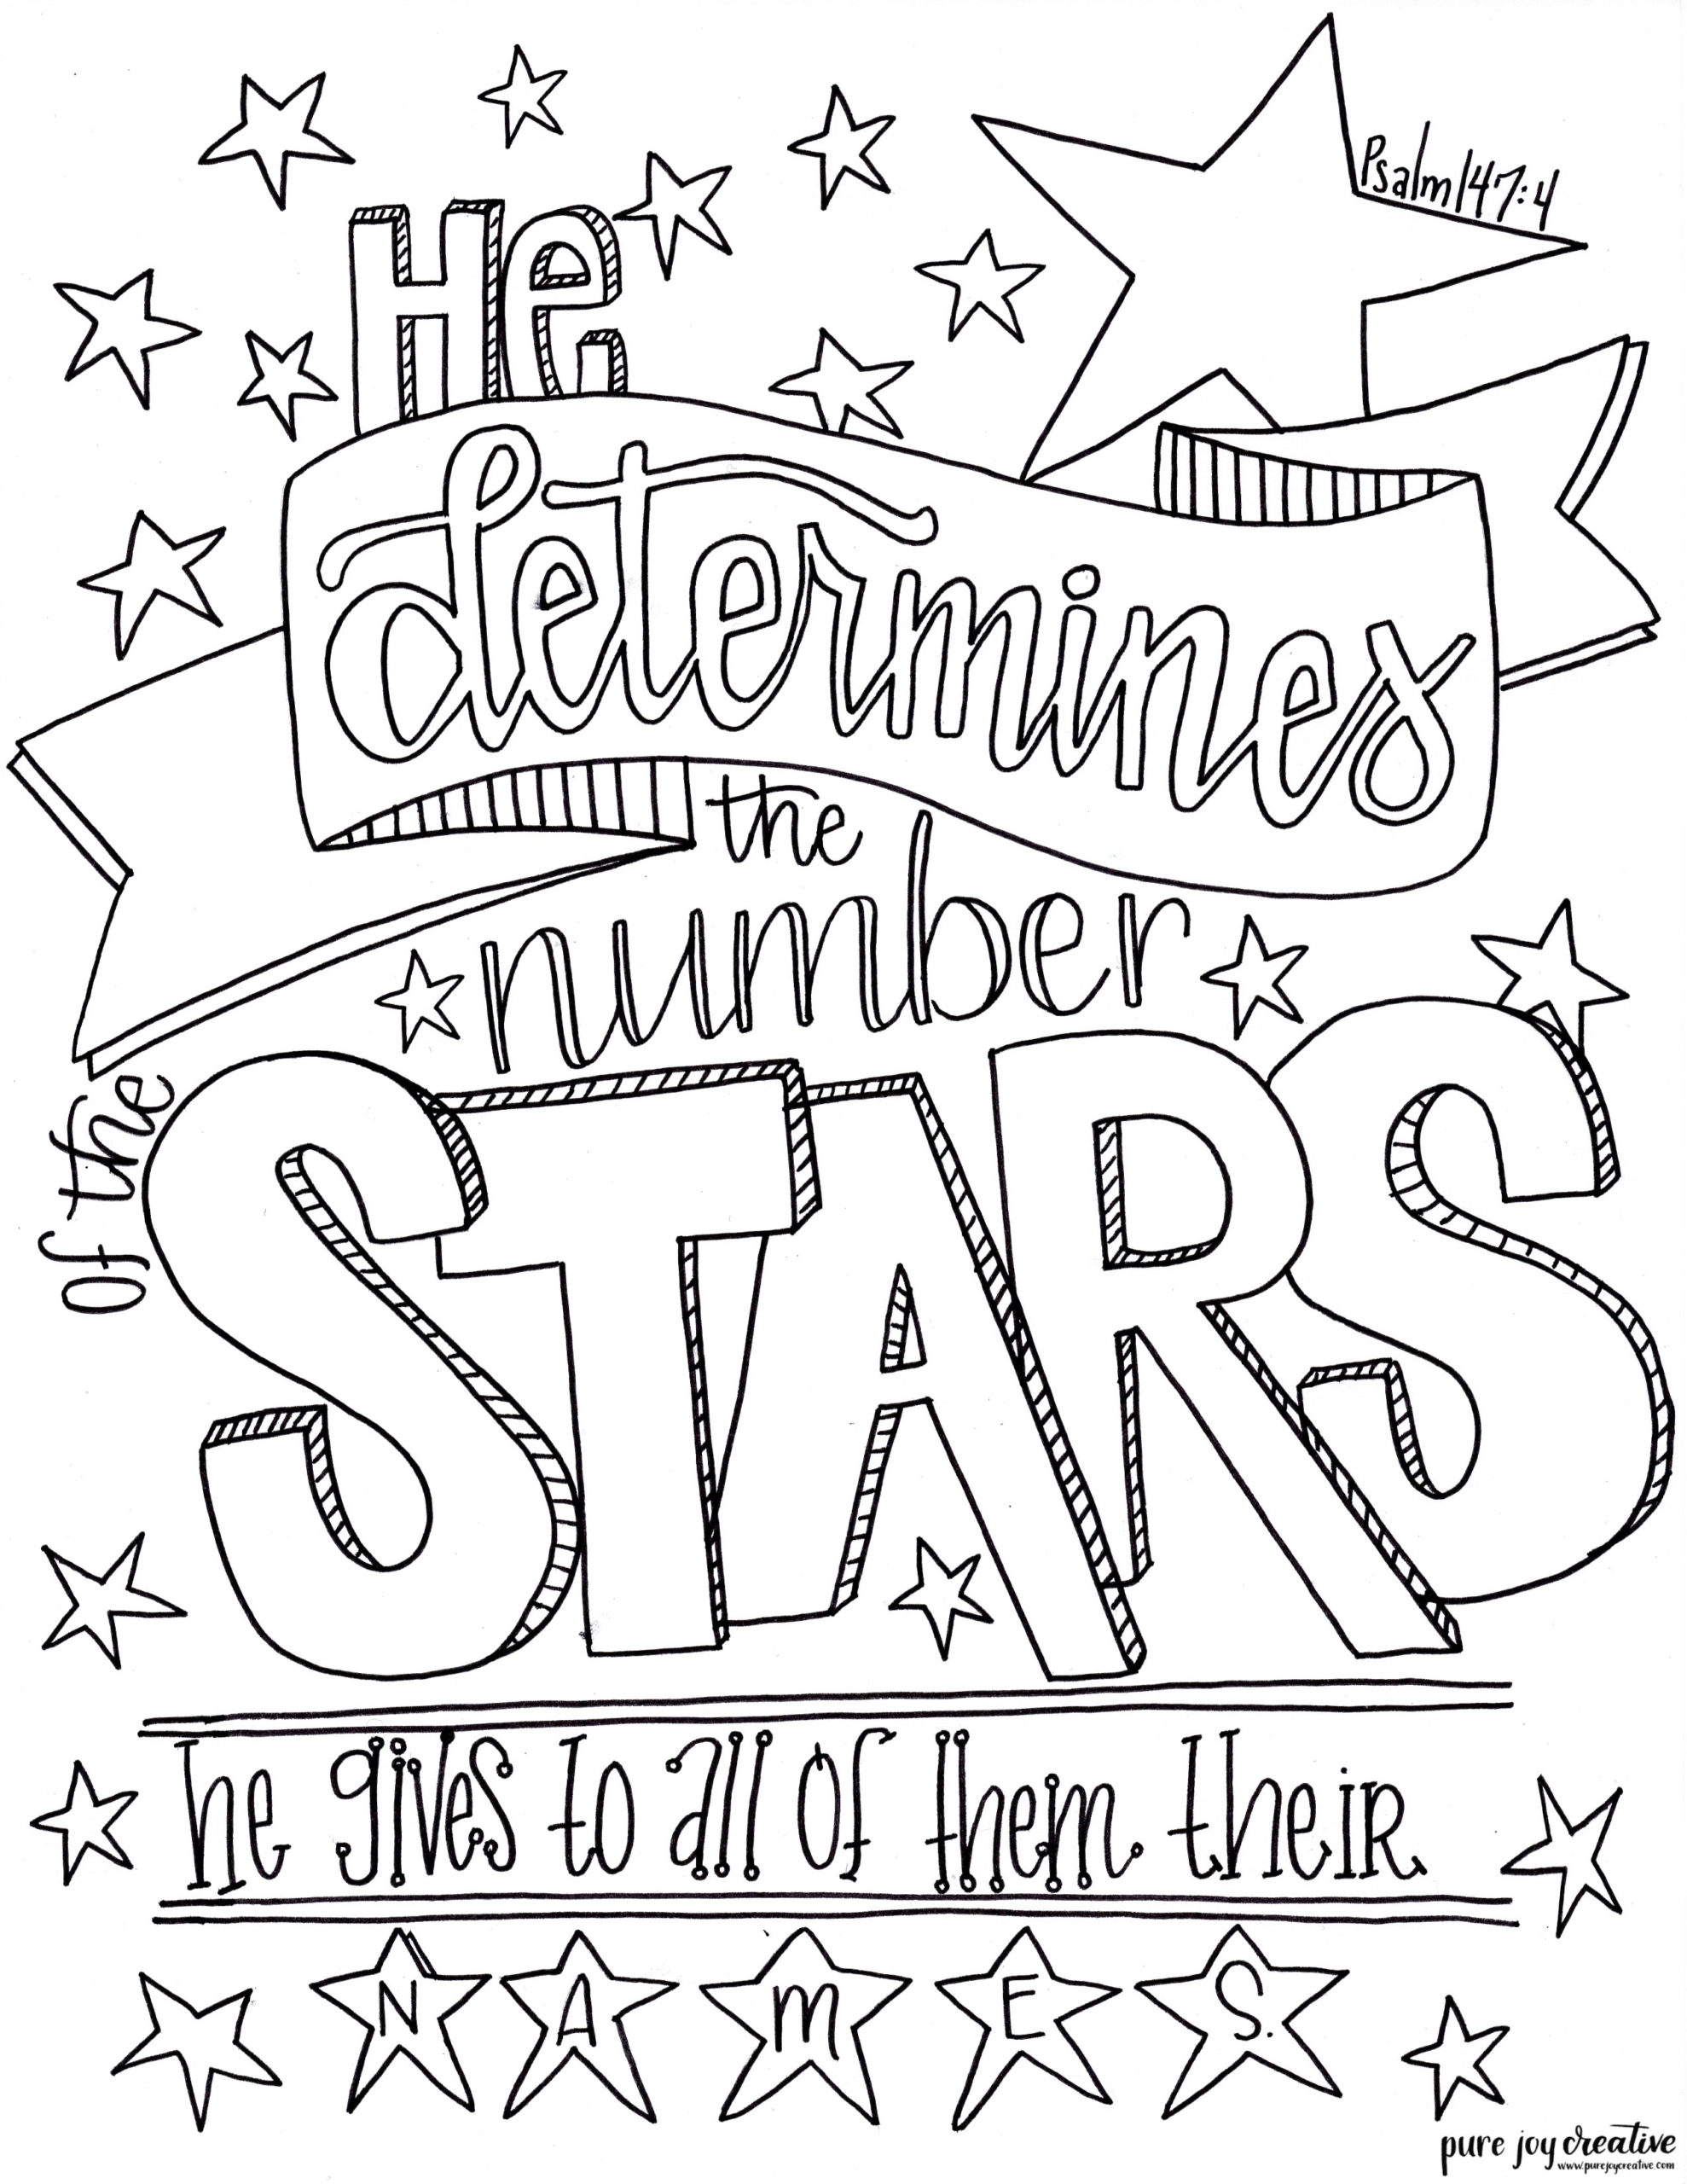 Psalm 147:4
He
determines
the
number
of the
STARS
he gives to all of them theiR
NAmES.
pure joy creative
www.purejoycreative.com